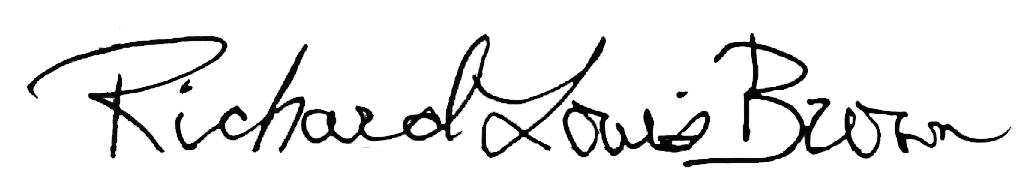 Richard Louis Brown